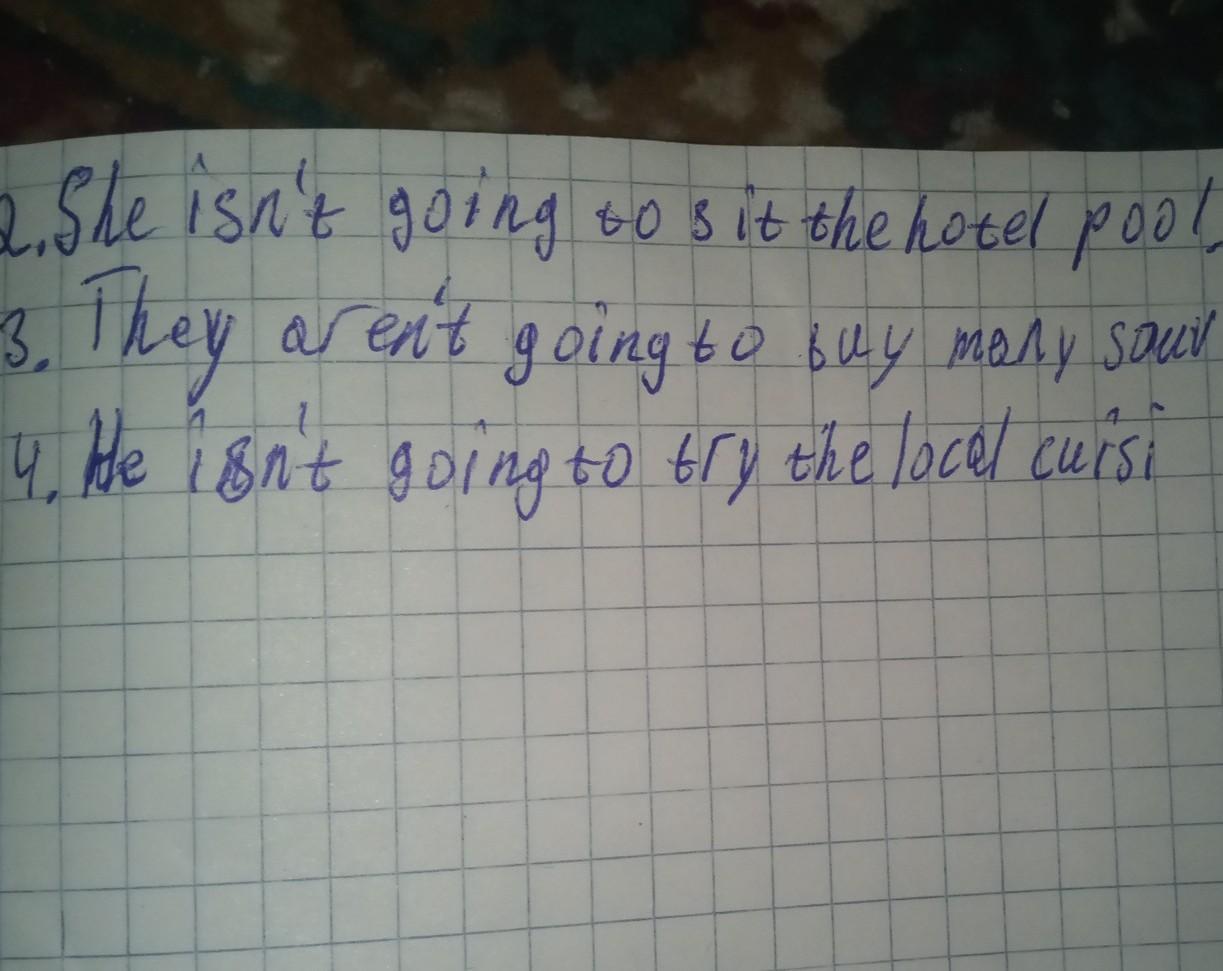 2. She isn't going to sit the hotel pool.
3. They aren't going to buy many souv
4. He isn't going to try the local cuisi